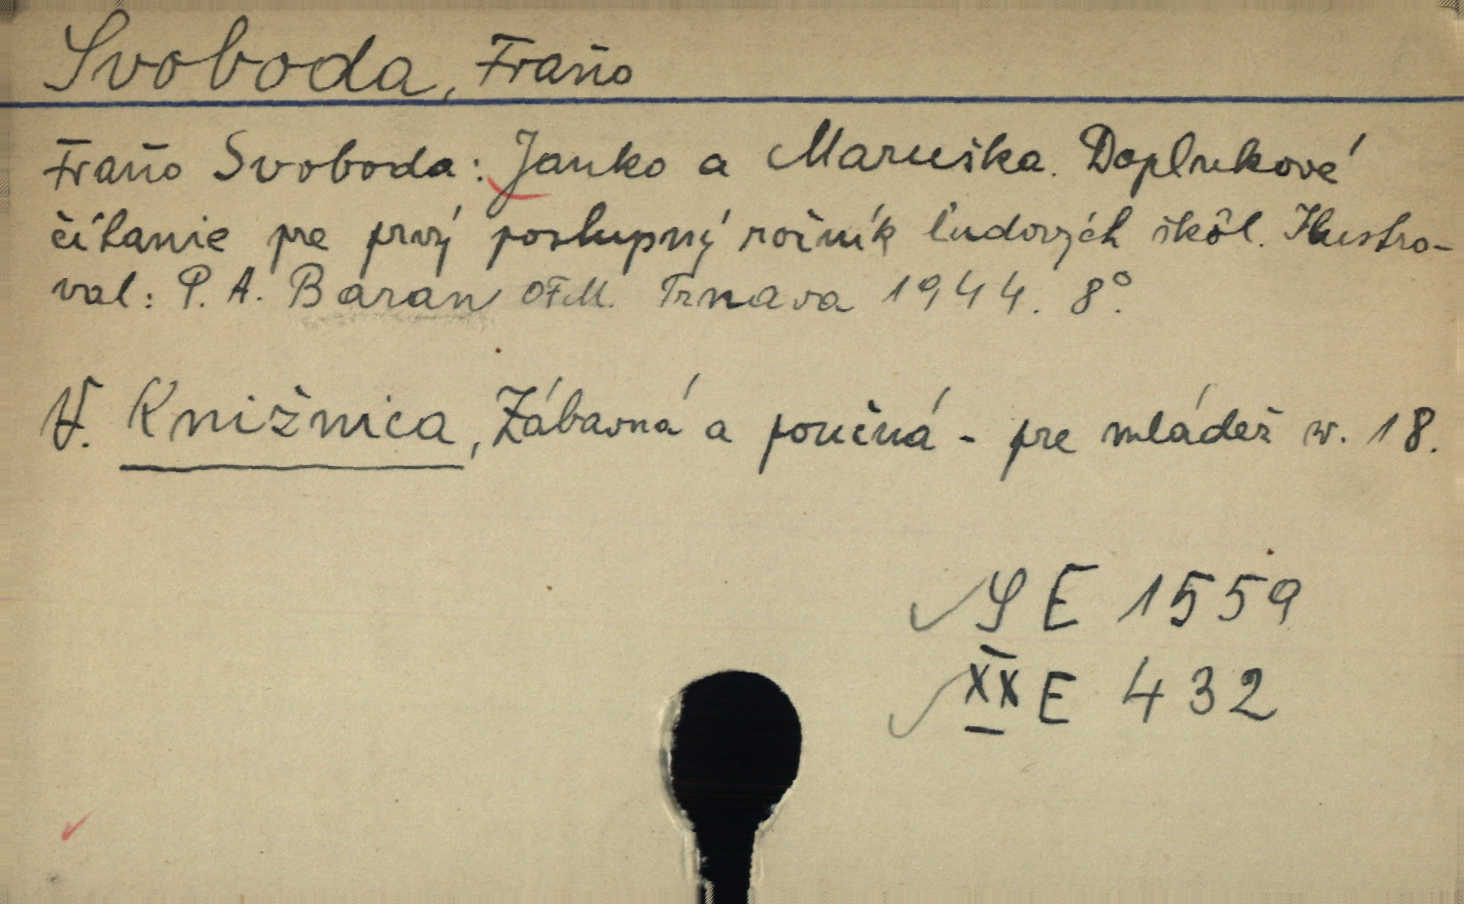 Svoboda, Fraňo
Fraňo Svoboda: Janko a Maruška. Doplnkové
čítanie pre prvý postupný ročník ľudových škôl. Ilustro-
val: P. A. Baran OFM. Trnava 1944. 8°.
V. Knižnica, Zábavná a poučná - pre mládež sv. 18.
S E 1559
XX E 432